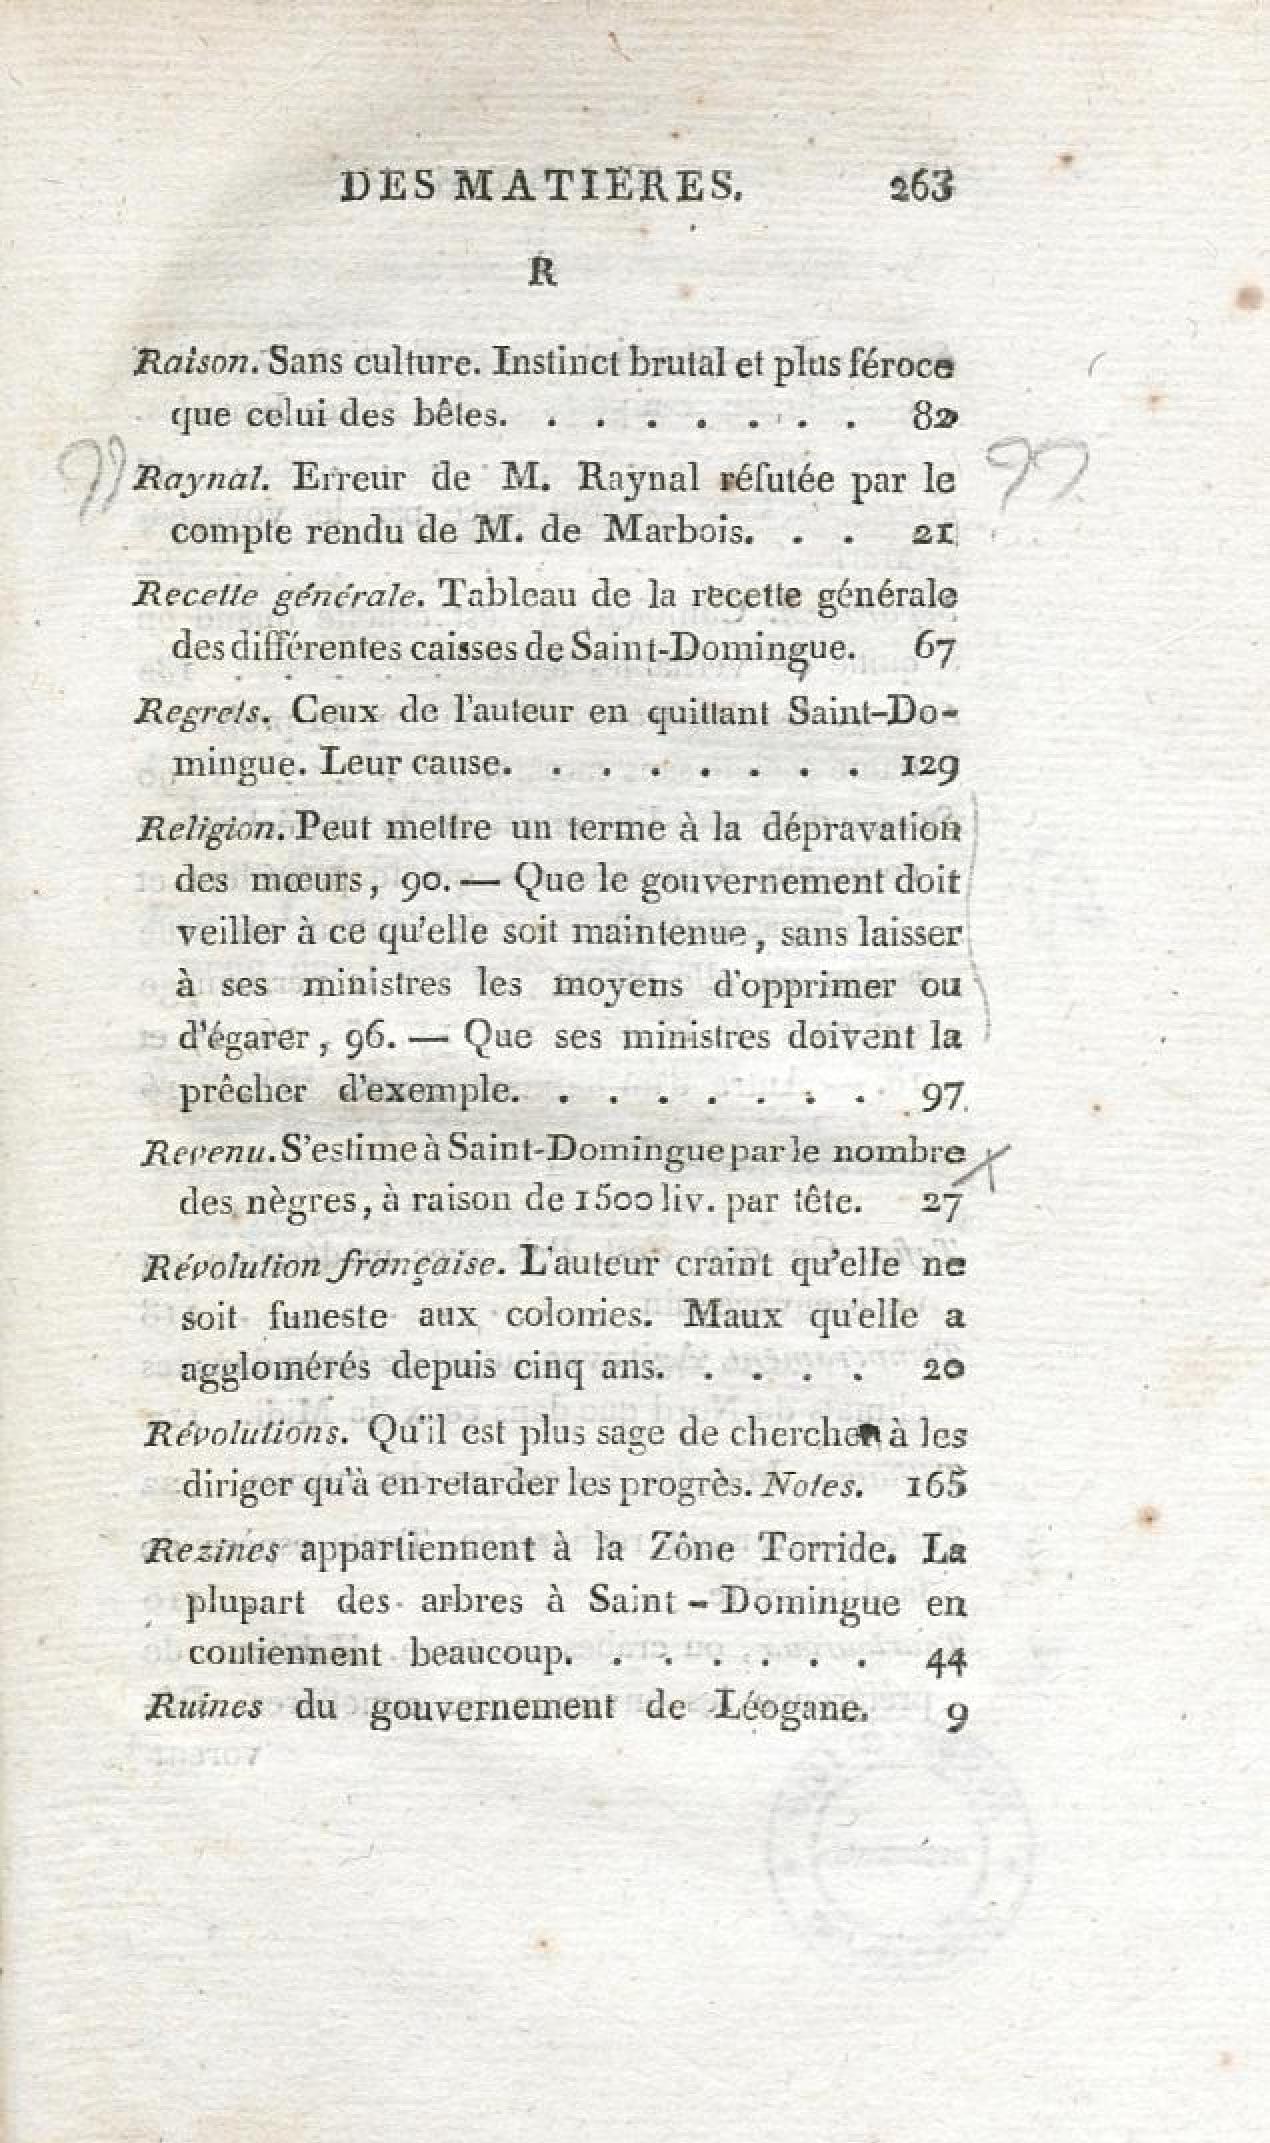 DES MATIÈRES. 263
R
Raison. Sans culture. Instinct brutal et plus féroce
que celui des bêtes. . . . . . . . 82
Raynal. Erreur de M. Raynal réfutée par le
compte rendu de M. de Marbois. . . 21
Recette générale. Tableau de la recette générale
des différentes caisses de Saint-Domingue. 67
Regrets. Ceux de l'auteur en quittant Saint-Do-
mingue. Leur cause. . . . . . . . 129
Religion. Peut mettre un terme à la dépravation
des mœurs, 90. — Que le gouvernement doit
veiller à ce qu'elle soit maintenue, sans laisser
à ses ministres les moyens d'opprimer ou
d'égarer, 96. — Que ses ministres doivent la
prêcher d'exemple. . . . . . . . 97
Revenu. S'estime à Saint-Domingue par le nombre
des nègres, à raison de 1500 liv. par tête. 27
Révolution française. L'auteur craint qu'elle ne
soit funeste aux colonies. Maux qu'elle a
agglomérés depuis cinq ans. . . . . 20
Révolutions. Qu'il est plus sage de chercher à les
diriger qu'à en retarder les progrès. Notes. 165
Rezines appartiennent à la Zône Torride. La
plupart des arbres à Saint-Domingue en
contiennent beaucoup. . . . . . . 44
Ruines du gouvernement de Léogane. 9